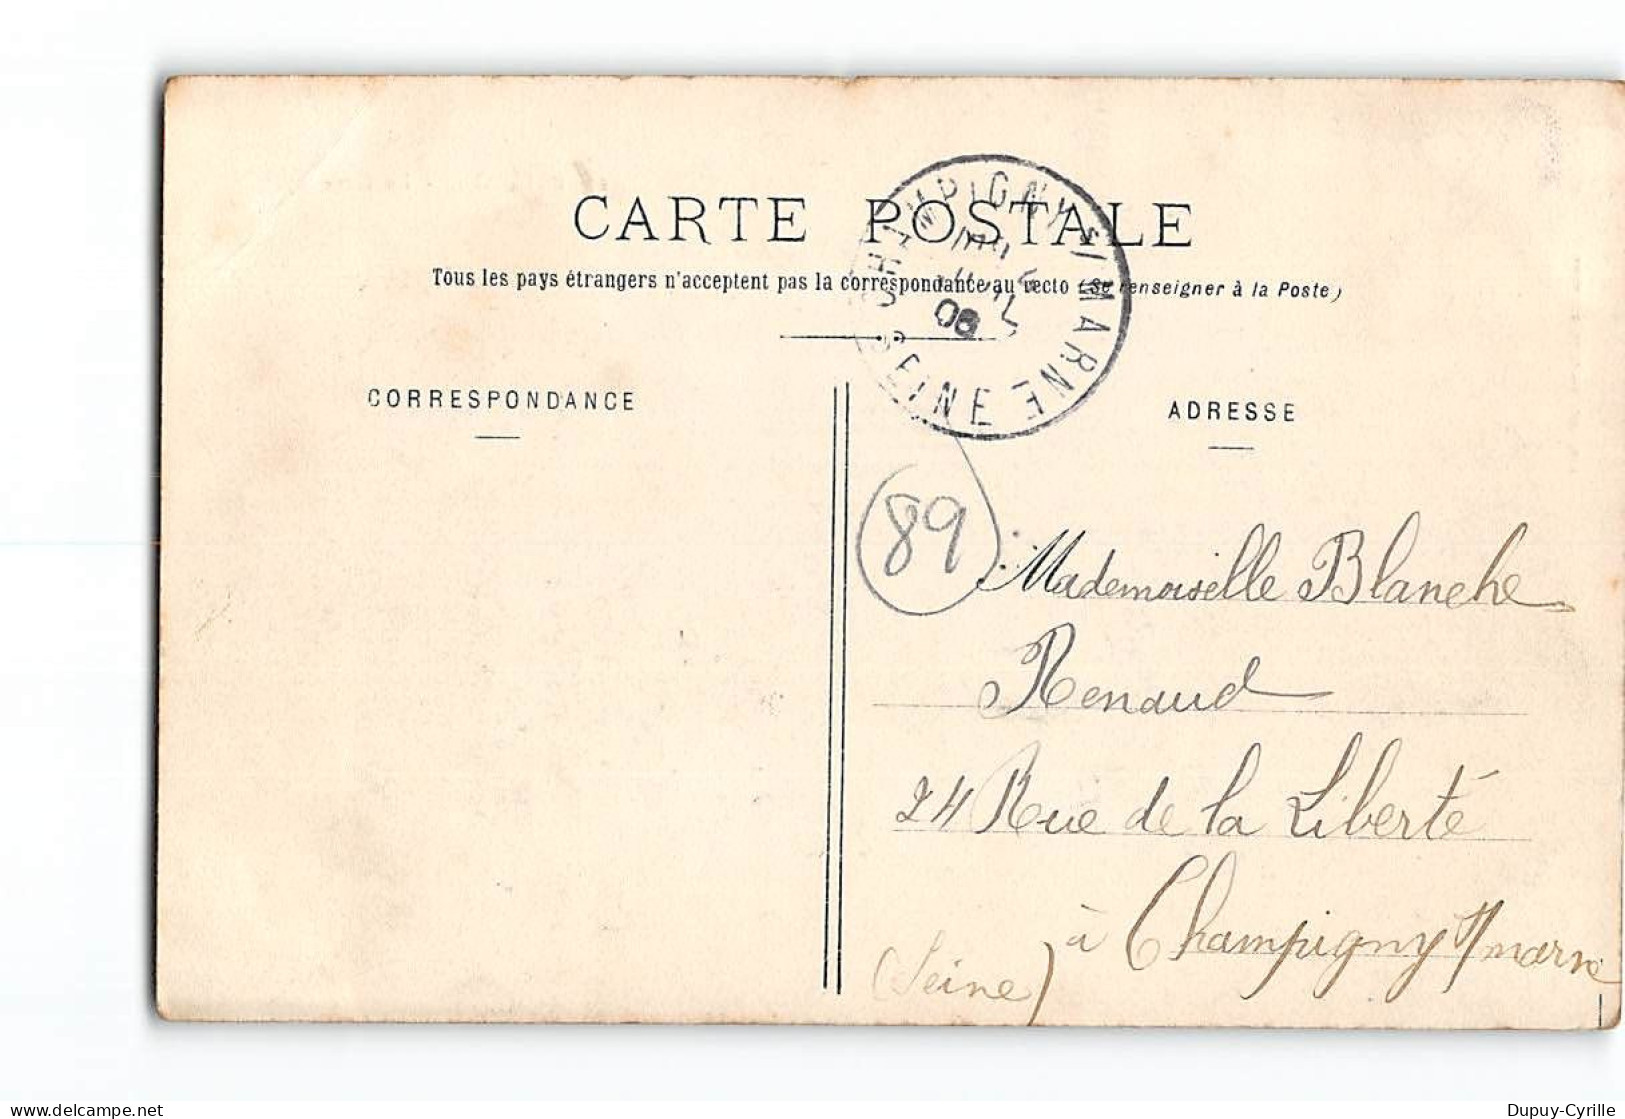 CARTE POSTALE
Tous les pays étrangers n'acceptent pas la correspondance au recto (Se renseigner à la Poste)
CHAMPIGNY S/ MARNE
SEINE
08
CORRESPONDANCE
ADRESSE
89
Mademoiselle Blanche
Renaud
24 Rue de la Liberté
à Champigny s/marne
(Seine)
delcampe.net
Dupuy-Cyrille